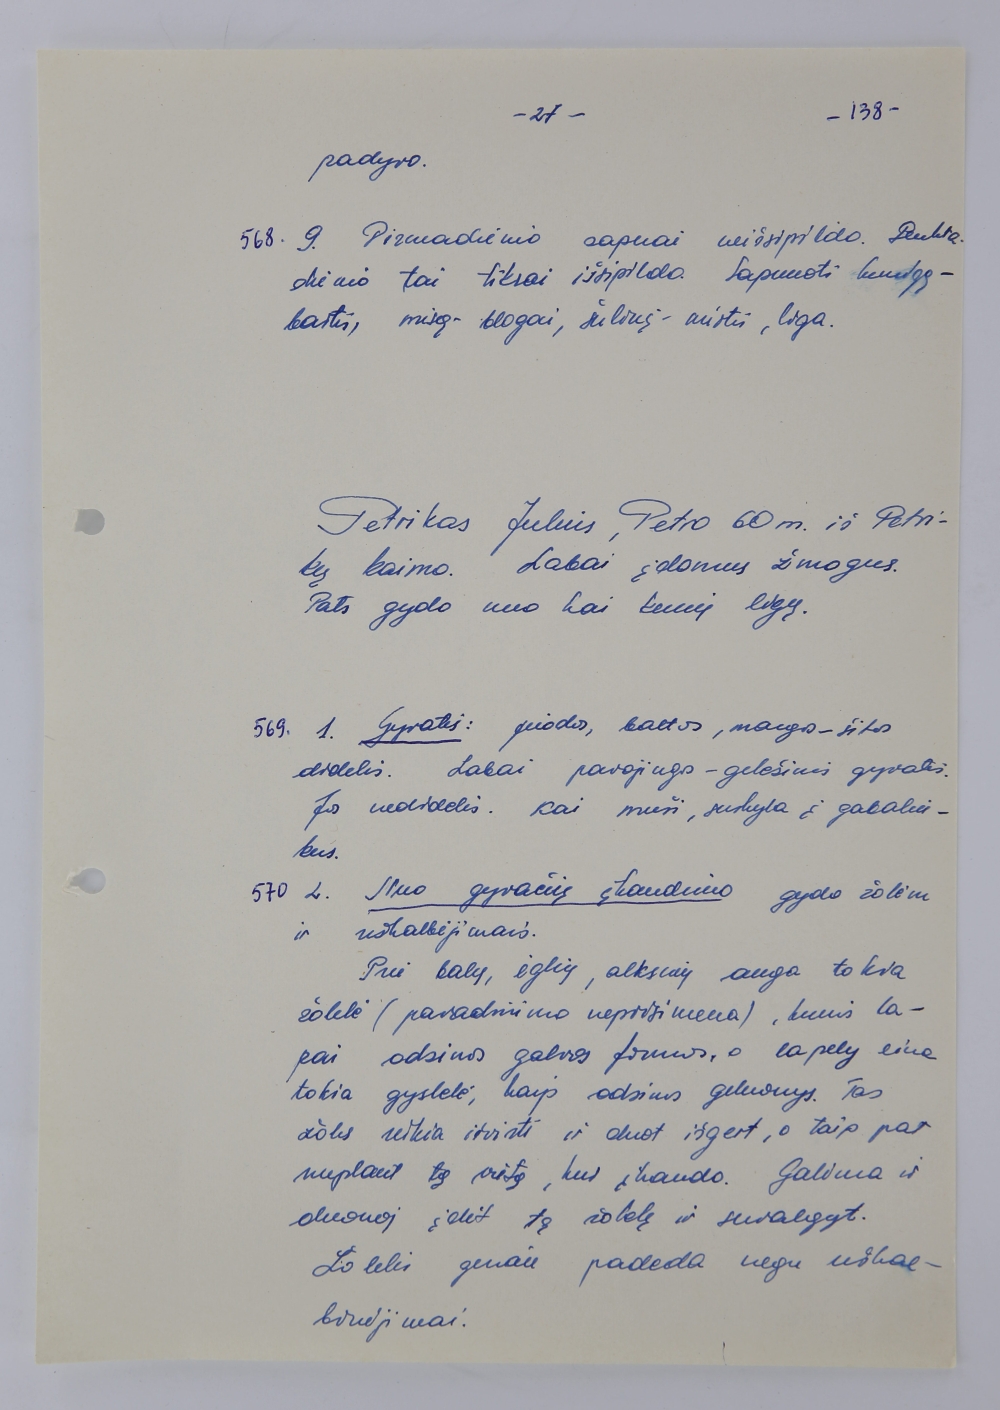 -27-
-138-
padyvo.
568. 9. Pirmadienio sapnai neišsipildo. Penkta-
dienio tai tiksai išsipildo. Sapnuoti kunigą-
bartis, mišą- blogai, šulinį- mirtis, liga.
Petrikas Julius, Petro 60 m. iš Petri-
kų kaimo. Labai įdomus žmogus.
Pats gydo nuo kai kurių ligų.
569. 1. Gyvatės: juodos, baltos, margos-šitos
didelės. Labai pavojingos - geležinės gyvatės.
Jos nedidelės. Kai muši, suskyla į gabaliu-
kus.
570 2. Nuo gyvačių įkandimo gydo žolėm
ir užkalbėjimais.
Prie balų, eglių, alksnių auga tokia
žolelė (pavadinimo neprisimena), kurios la-
pai adsinos galvos formos, o lapely eina
tokia gyslelė, kaip adsinos geluonys. Tas
žoles reikia išvirti ir duot išgert, o taip pat
nuplaut tą vietą, kur įkando. Galima ir
duonoj įdėt tą žolelę ir suvalgyt.
Žolelės geriau padeda negu užkal-
binėjimai.